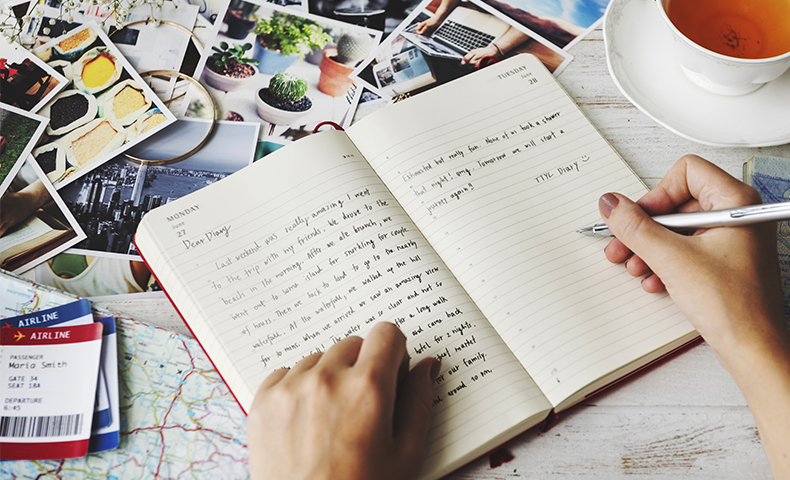 MONDAY
JUNE
27
Dear Diary
Last weekend was really amazing I went
to the trip with my friends. We drove to the
beach in the morning. After we ate brunch, we
went out to some island for snorkling for couple
of hours. Then we back to land to go to the nearby
waterfall. At the waterfall, we walked up the hill
for 30 min when we arrived we saw an amazing view
The water was so clear and not so
after a long walk
and came back
hotel for 2 nights.
market
for our family.
around 10 km.
TUESDAY
JUNE
28
Exhausted but really fun. None of us took a shower
that night! sng. Tomorrow we will start a
journey again!!
TTYL Diary
AIRLINE
AIRLINE
PASSENGER
Maria Smith
GATE 34
SEAT 18A
DEPARTURE
6:45